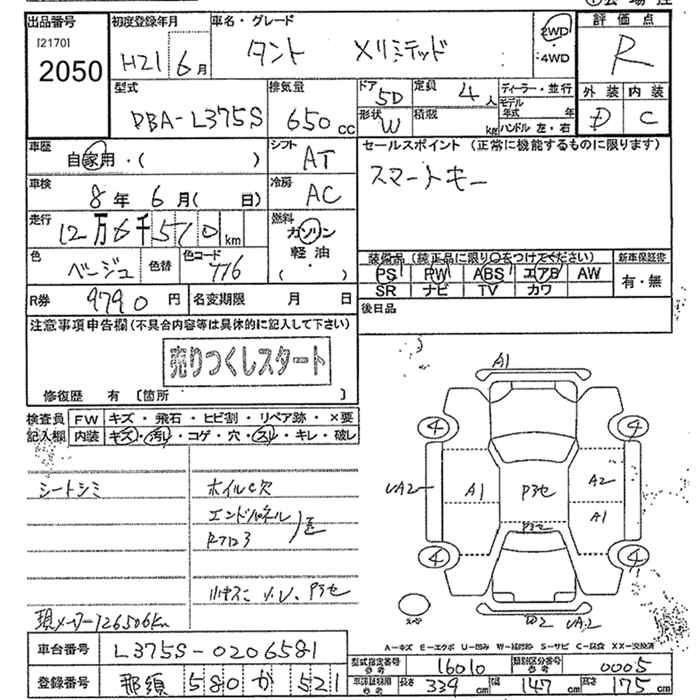 出品番号 初度登録年月 車名・グレード 評価点
[2170] 2050 H21 6月 タント Xリミテッド 2WD ・4WD R
型式 排気量 ドア 定員 ディーラー・並行 外装 内装
DBA-L375S 650cc 5D 4人 モデル年式 年 D C
形状 W 積載 kg ハンドル 左・右
車歴 シフト セールスポイント (正常に機能するものに限ります)
自家用・( ) AT スマートキー
車検 8年6月( 日) 冷房 AC
走行 12万6千510km 燃料 ガソリン 軽油 ( )
色 ベージュ 色替 色コード T16
装備品(純正品に限り○をつけてください) 新車保証書
PS PW ABS エアB AW 有・無
SR ナビ TV カワ
R券 9790円 名変期限 月 日 後日品
注意事項申告欄(不具合内容等は具体的に記入して下さい)
売りつくしスタート
修復歴 有 [箇所 ]
検査員 FW キズ・飛石・ヒビ割・リペア跡・×要
記入欄 内装 キズ・汚れ・コゲ・穴・スレ・キレ・破レ
シートシミ ホイルC欠
エンドパネル
現メーター126506Km
A1
4 4
UA2 A1 Pヨセ A2
A1
Pヨセ
4 4
W2 UA2
A－キズ E－エクボ U－凹み W－補修跡 S－サビ C－腐食 XX－交換済
車台番号 L375S-0206581
型式指定番号 参考 16010 類別区分番号 参考 0005
登録番号 那須 580 か 521
車検証記録 参考 長さ 339cm 幅 147cm 高さ 175cm